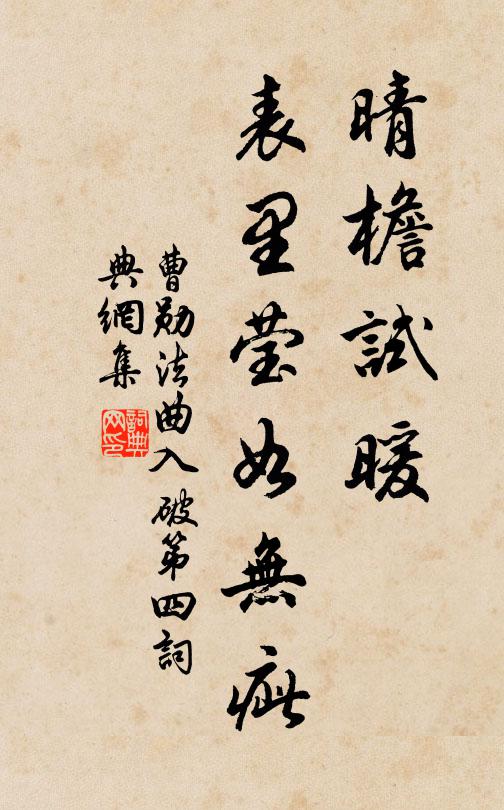 晴檐試暖
表里瑩如無疵
曹勛法曲入破第四詞
典網集
詞典网印